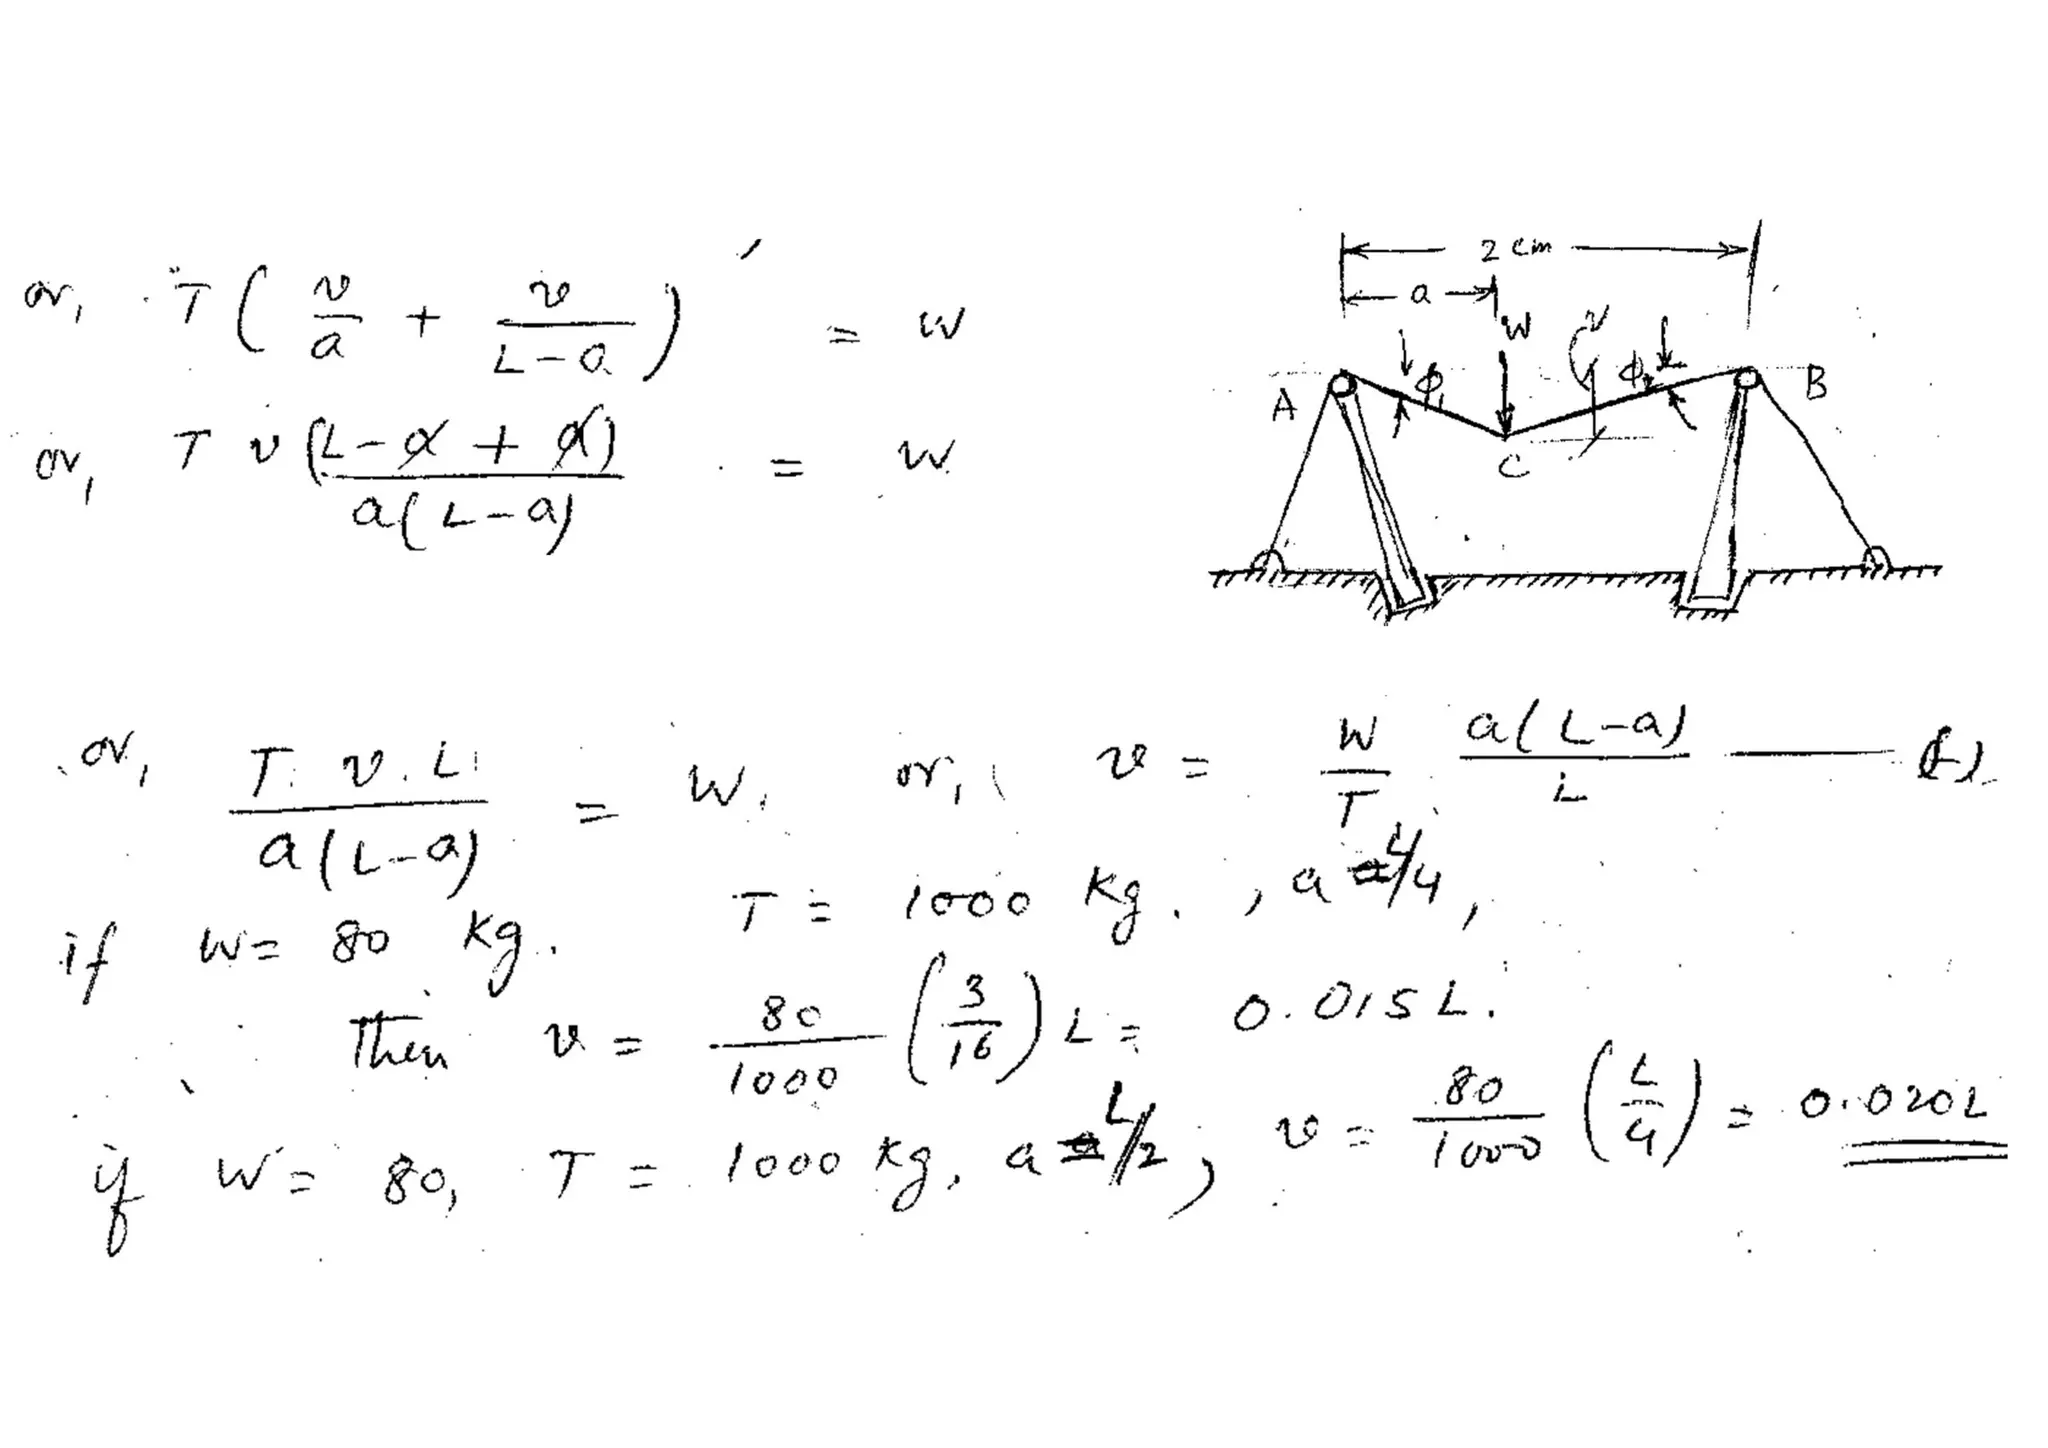 or, T ( v/a + v/(L-a) ) = W
or, T v (L-a+a) / a(L-a) = W
2 cm
a
W
v
A
φ1
φ2
B
C
or, T. v. L / a(L-a) = W. or, v = W/T a(L-a)/L
if W = 80 kg. T = 1000 kg., a = L/4,
Then v = 80/1000 (3/16) L = 0.015 L.
if W = 80, T = 1000 kg, a = L/2, v = 80/1000 (L/4) = 0.020L